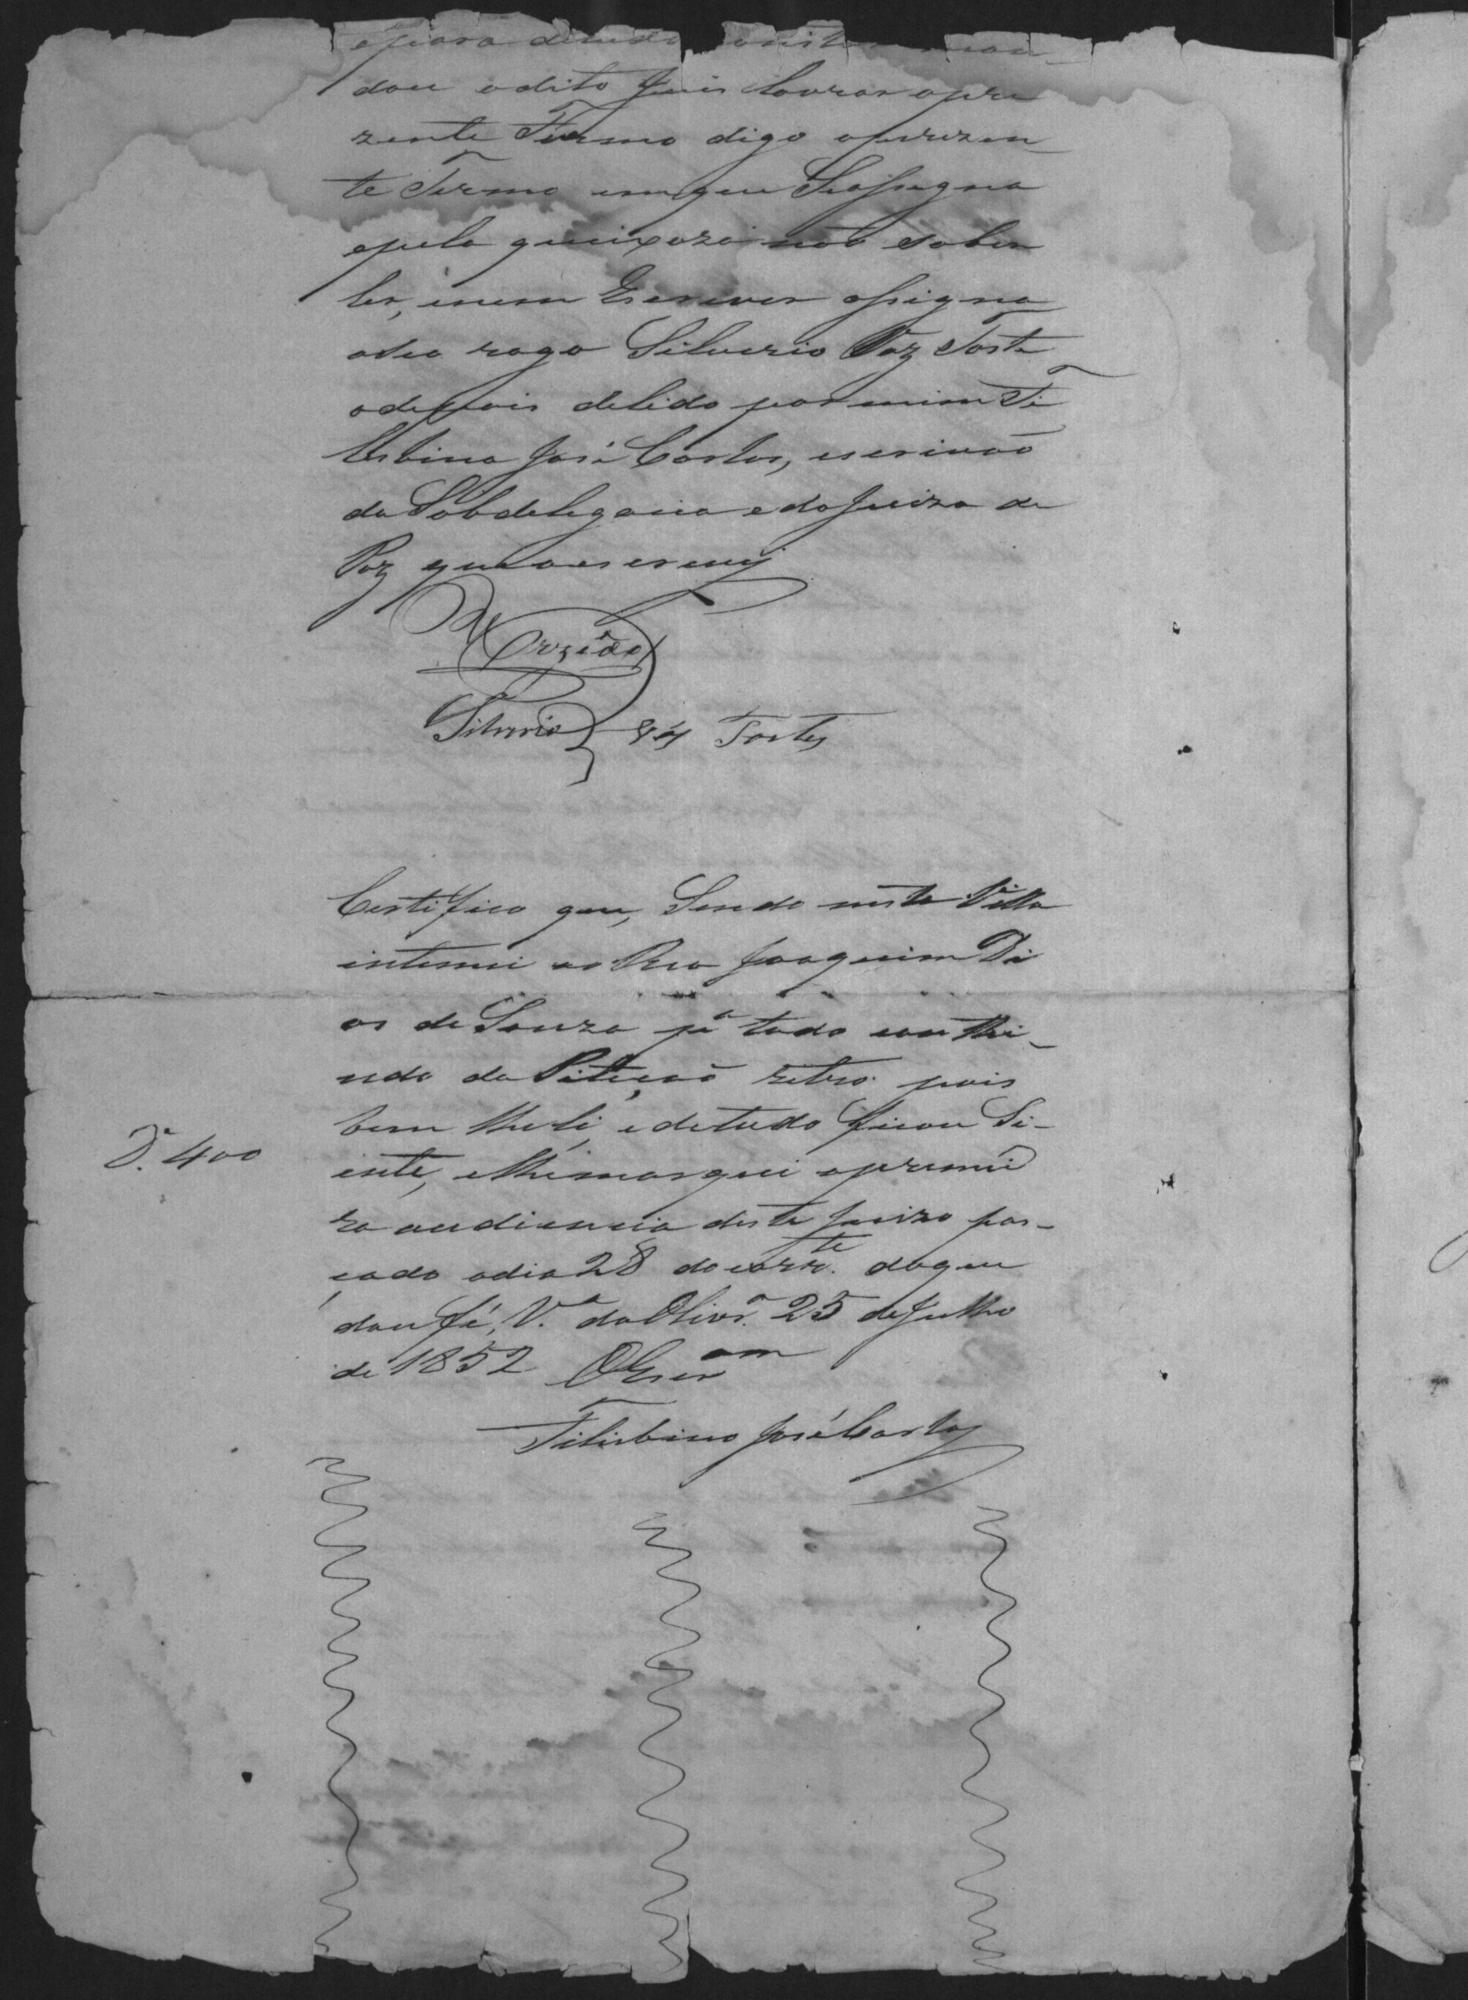 epara detudo constar man
dou odito Juis lavrar opre
zente Termo digo oprezen
te Termo emque Seasigna
epela queixoza não saber
ler, enem Escrever assigna
aseo rogo Silverio Vaz Torte
odepois delido por mim Ti
lisbino José Carlos, escrivão
da Sobdelegacia e do Juizo de
Paz que oescrevy
Silverio Vaz Tortes
Certifico que, Sendo nesta Villa
intimei ao Reo Joaquim Di
as de Souza pª todo conthi-
udo da Petição retro pois
bem lheli, edetudo ficou Si-
ente, elhemarquei aprimei
ra audiencia deste Juizo pas-
çado odia 28 docorrte. doque
dou fé, Vª daOlivrª 25 deJulho
de 1852 OEscram
Tilisbino José Carlos
D. 400